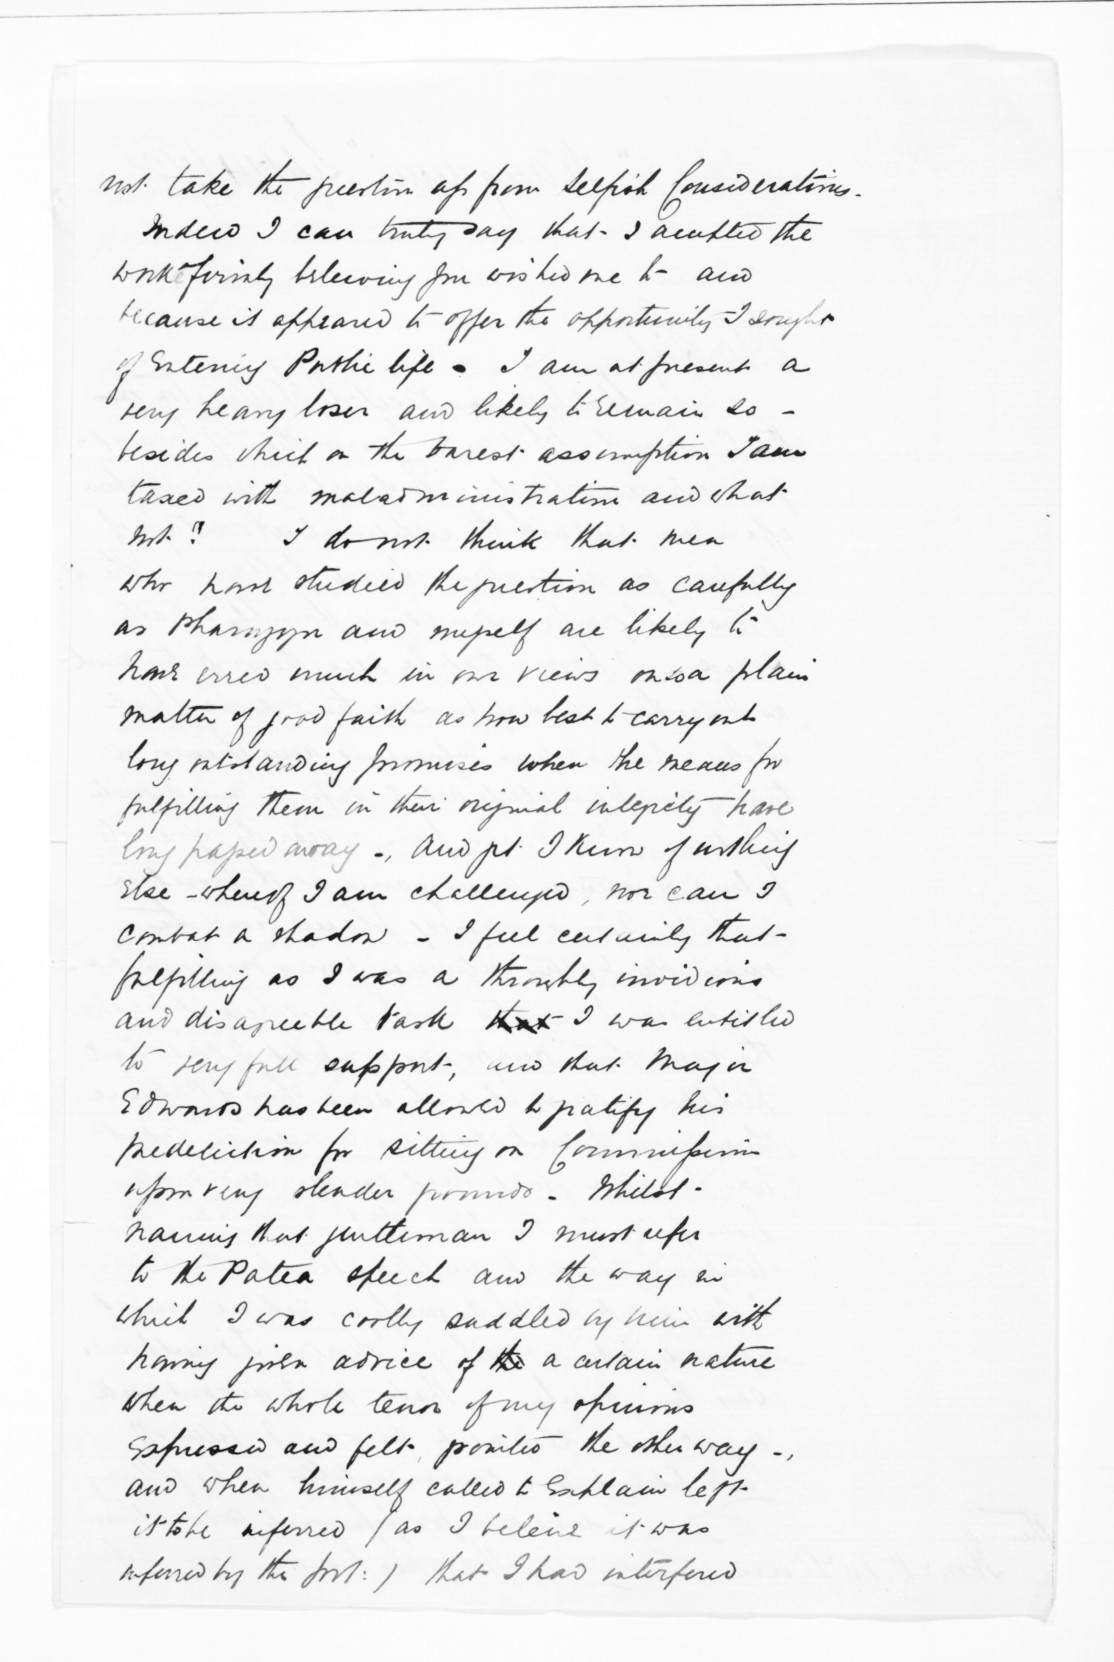 not take the question up from selfish Considerations.
Indeed I can truly say that I accepted the
work firmly believing you wished me to and
because it appeared to offer the opportunity I sought
of Entering Public life. I am at present a
very heavy loser and likely to remain so -
besides which on the barest assumption I am
taxed with maladministration and what
not!! I do not think that men
who have studied the question as carefully
as and myself are likely to
have erred much in our views on so a plain
matter of good faith as how best to carry out
long outstanding promises when the means for
fulfilling them in their original integrity have
long passed away -, And yet I know of nothing
Else - whereof I am challenged, nor can I
combat a shadow - I feel certainly that
fulfilling as I was a throughly invidious
and disagreeable task that I was entitled
to very full support, and that Major
Edwards has been allowed to gratify his
predeliction for sitting on Commissions
upon very slender grounds - Whilst
naming that gentleman I must refer
to the Patea speech and the way in
which I was coolly saddled by him with
having given advice of the a certain nature
when the whole tenor of my opinions
Expressed and felt, pointed the other way -,
and when himself called to Explain left
it to be inferred (as I beleive it was
inferred by the Govt:) that I had interfered